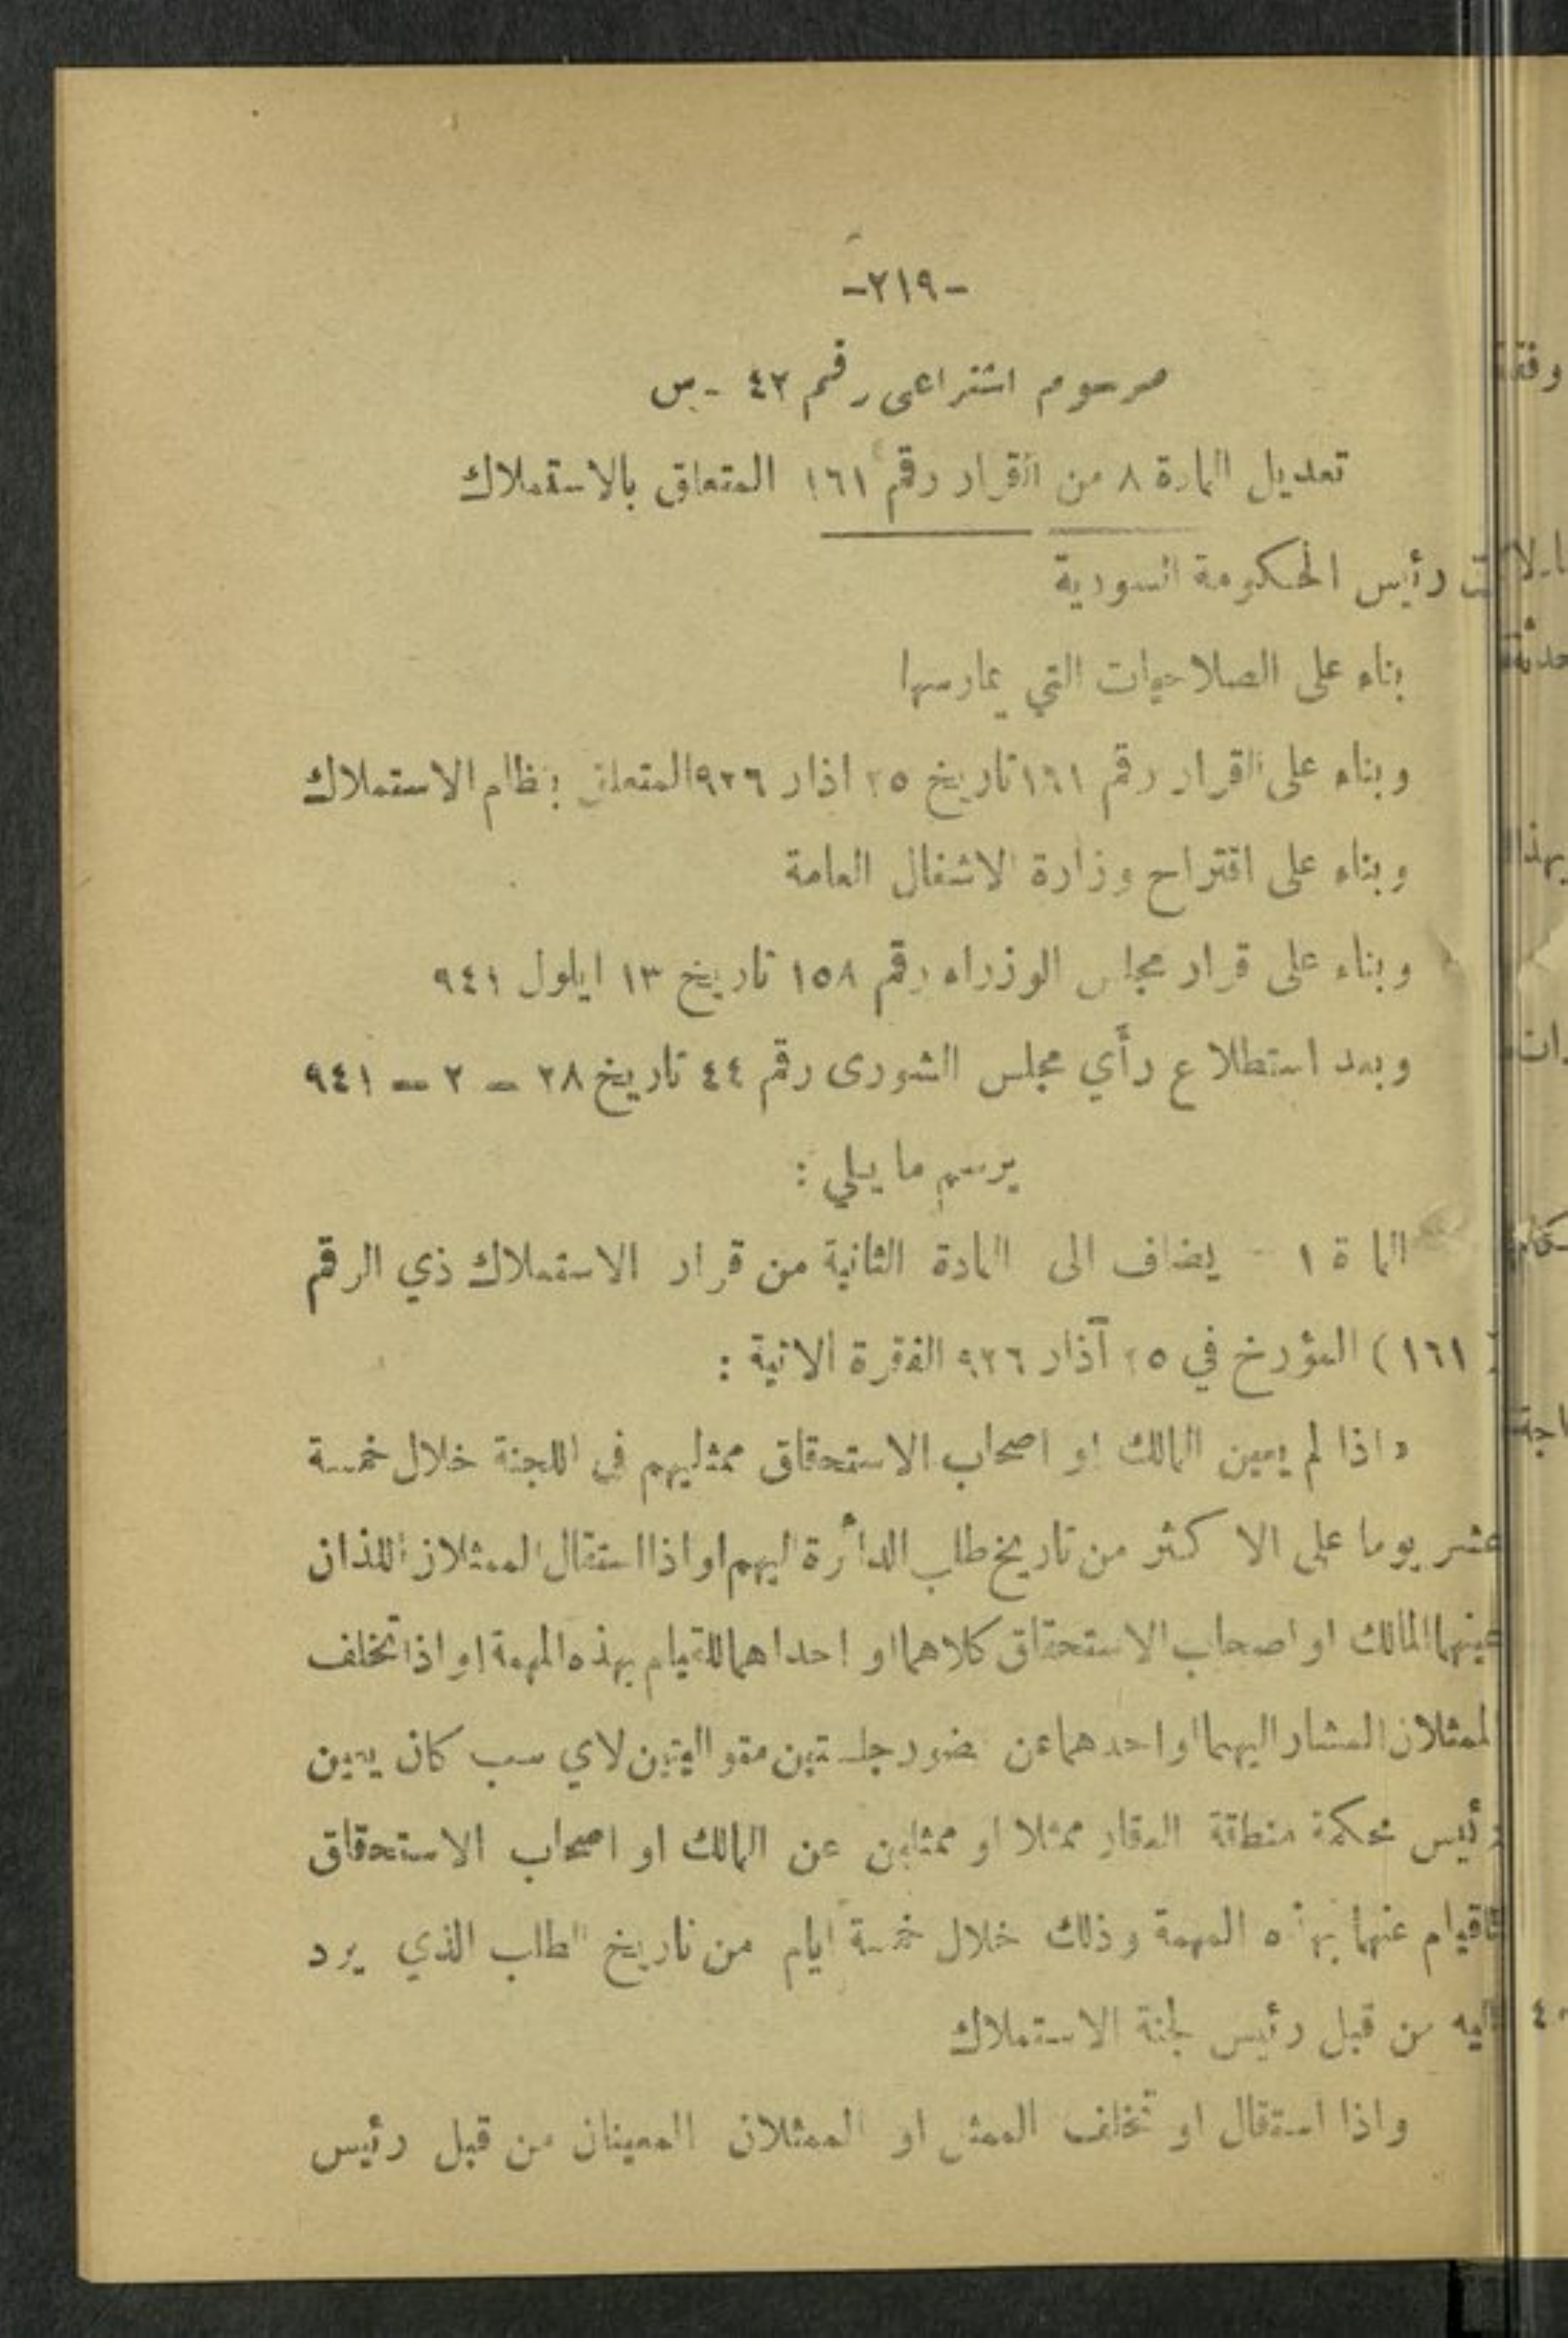 -٢١٩-
مرسوم اشتراعي رقم ٤٢ - س
تعديل المادة ٨ من القرار رقم ١٦١ المتعلق بالاستملاك
رئيس الحكومة السورية
بناء على الصلاحيات التي يمارسها
وبناء على القرار رقم ١٦١ تاريخ ٢٥ اذار ٩٢٦ المتعلق بنظام الاستملاك
وبناء على اقتراح وزارة الاشغال العامة
وبناء على قرار مجلس الوزراء رقم ١٥٨ تاريخ ١٣ ايلول ٩٤١
وبعد استطلاع رأي مجلس الشورى رقم ٤٤ تاريخ ٢٨ - ٢ - ٩٤١
يرسم ما يلي :
الما ة ١ - يضاف الى المادة الثانية من قرار الاستملاك ذي الرقم
( ١٦١ ) المؤرخ في ٢٥ آذار ٩٢٦ الفقرة الاتية :
« اذا لم يعين المالك او اصحاب الاستحقاق ممثليهم في اللجنة خلال خمسة
عشر يوما على الاكثر من تاريخ طلب الدائرة اليهم او اذا استقال الممثلان اللذان
عينهما المالك او اصحاب الاستحقاق كلاهما او احداهما للقيام بهذه المهمة او اذا تخلف
الممثلان المشار اليهما او احدهما عن حضور جلستين متواليتين لاي سبب كان يعين
رئيس محكمة منطقة العقار ممثلا او ممثلين عن المالك او اصحاب الاستحقاق
للقيام عنهما بهذه المهمة وذلك خلال خمسة ايام من تاريخ الطلب الذي يرد
اليه من قبل رئيس لجنة الاستملاك
واذا استقال او تخلف الممثل او الممثلان المعينان من قبل رئيس